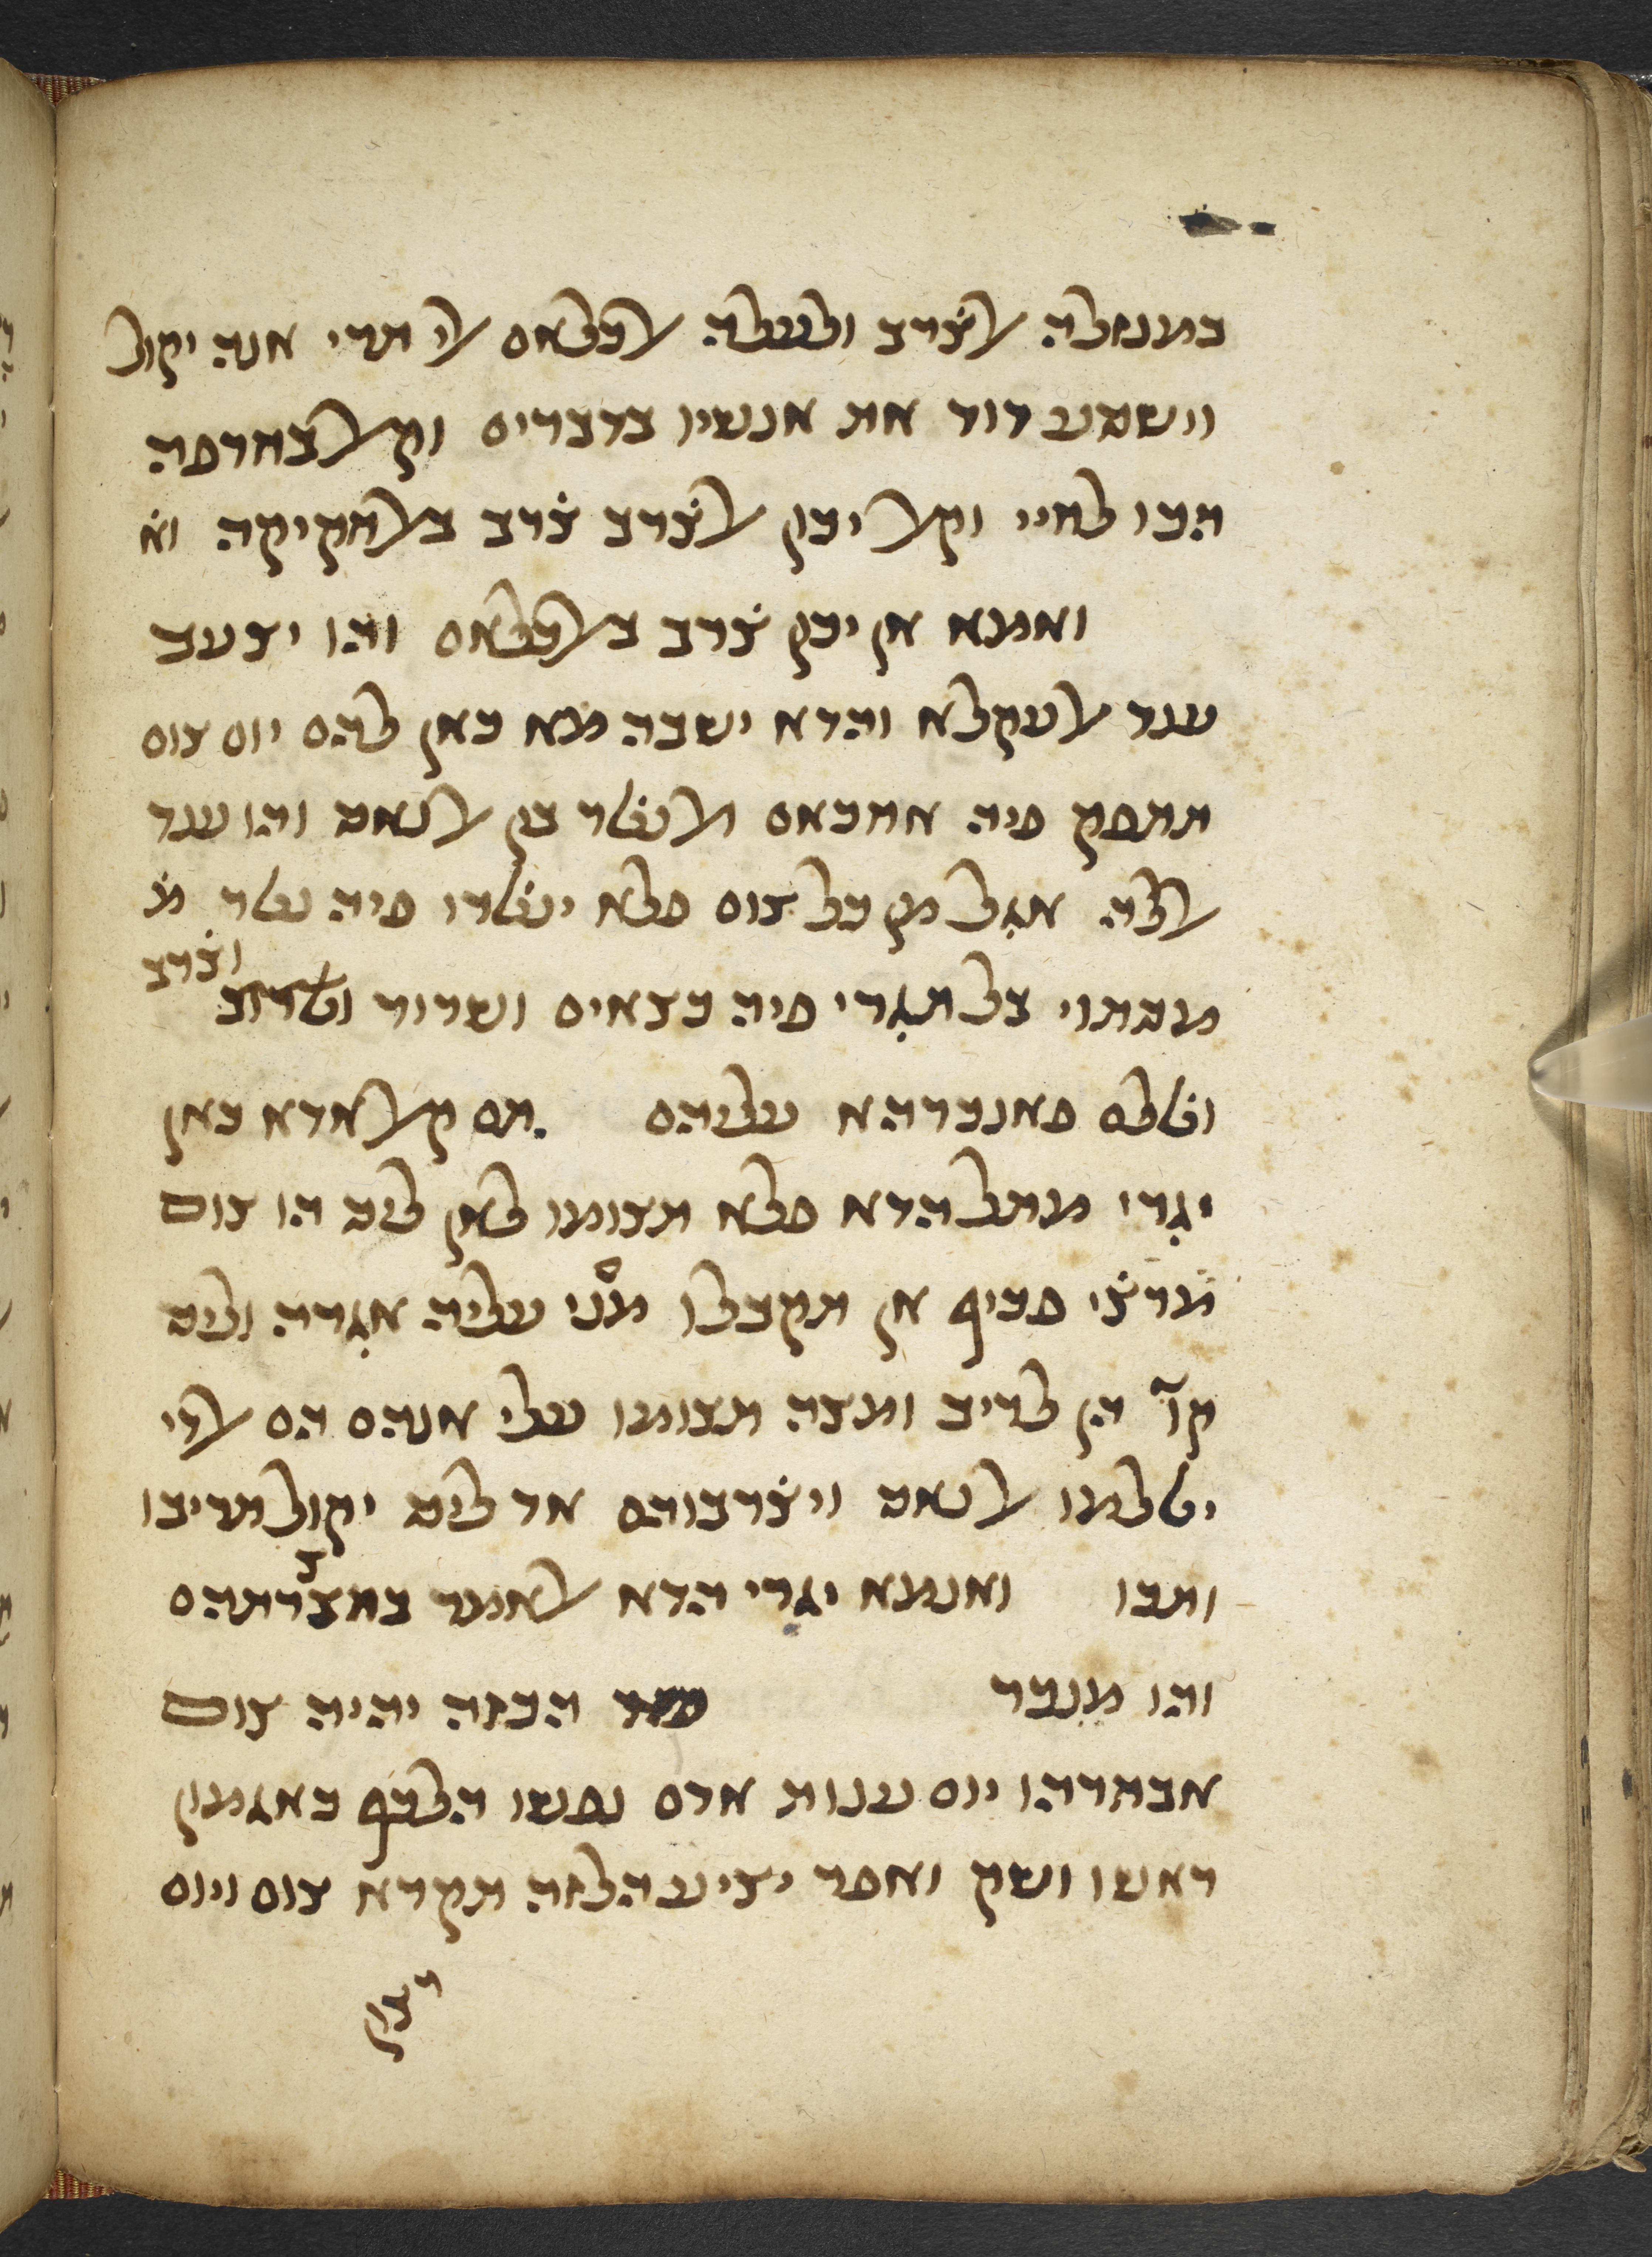 במנזלה אלצ̇רב ולנעלה אלכלאם אלי תרי אנה יקול
וישסע דוד את אנשיו בדברים וקאל בחרפה
הכו לחיי וקאל יכון אלצ̇רב צ̇רב באלחקיקה וא̇
ואמא אן יכון צ̇רב באלכלאם והו יצעב
ענד אלעקלא והדא ישבה מא כאן להם יום צום
תתפק פיה אחכאם ואלנט̇ר בין אלנאס והו ענד
אללה אג̇ל מן כל צום פלא ינט̇רו פיה נט̇ר מ̇
מסתוי בל תג̇רי פיה כצאים ושרור וצ̇רב
וט̇לם פאנכרהא עליהם תם קאל אדא כאן
יג̇רי מתל הדא פלא תצומו לאן ליס הו צום
מרצ̇י פכיף אן תקבלו מני עליה אג̇רה וליס
ק̇ו̇ הן לריב ומצה תצומו עלי אנהם הם אלדי
יט̇למו אלנאס ויצ̇רבוהם אד ליס יקול תריבו
ותכו ואנמא יג̇רי הדא אלאמר בחצ̇רתהם
והו מנכר הכזה יהיה צום
אבחרהו יום ענות אדם נפשו הלכף כאגמון
ראשו ושק ואפר יציע הלזה תקרא צום ויום
רצון